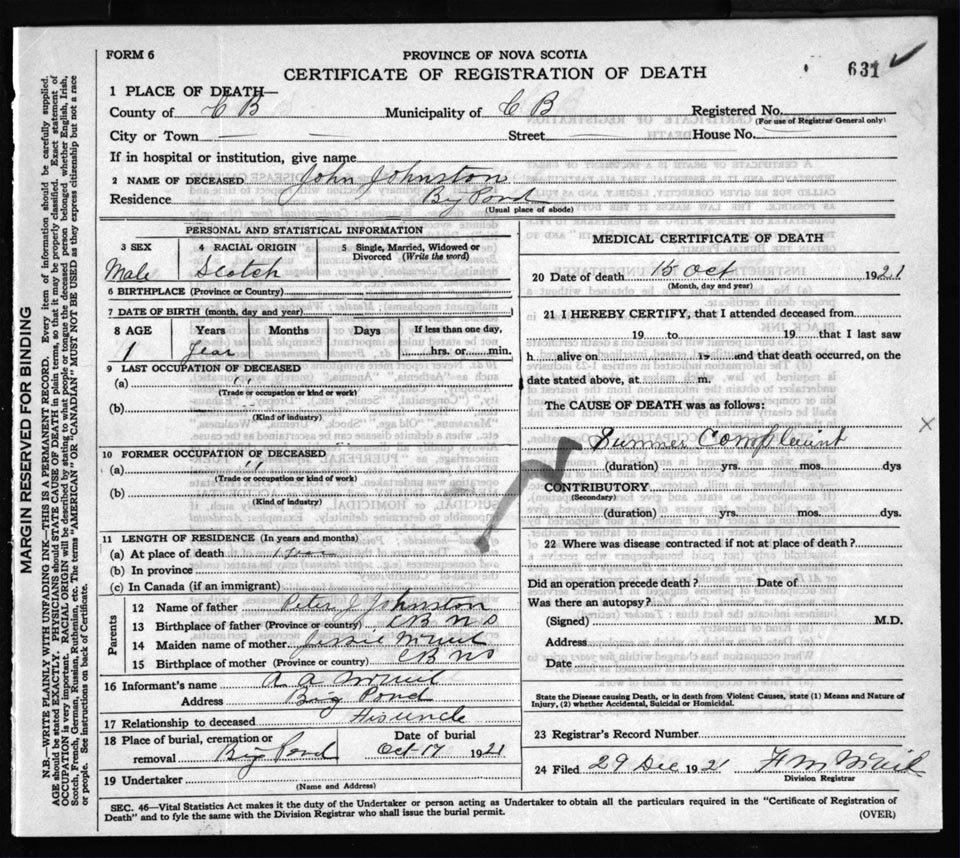 FORM 6
PROVINCE OF NOVA SCOTIA
CERTIFICATE OF REGISTRATION OF DEATH
631
1 PLACE OF DEATH—
County of C B Municipality of C B Registered No.
(For use of Registrar General only)
City or Town Street House No.
If in hospital or institution, give name
2 NAME OF DECEASED John Johnston
Residence Big Pond
(Usual place of abode)
PERSONAL AND STATISTICAL INFORMATION
3 SEX 4 RACIAL ORIGIN 5 Single, Married, Widowed or Divorced (Write the word)
Male Scotch
6 BIRTHPLACE (Province or Country)
7 DATE OF BIRTH (month, day and year)
8 AGE Years Months Days If less than one day,
1 Year hrs. or min.
9 LAST OCCUPATION OF DECEASED
(a) ''
(Trade or occupation or kind or work)
(b)
(Kind of industry)
10 FORMER OCCUPATION OF DECEASED
(a) ''
(Trade or occupation or kind or work)
(b)
(Kind of industry)
11 LENGTH OF RESIDENCE (In years and months)
(a) At place of death 1 year
(b) In province
(c) In Canada (if an immigrant)
Parents
12 Name of father Peter J Johnston
13 Birthplace of father (Province or country) C B N S
14 Maiden name of mother Jessie
15 Birthplace of mother (Province or country) C B N S
16 Informant's name A A
Address Big Pond
17 Relationship to deceased His uncle
18 Place of burial, cremation or removal Big Pond
Date of burial Oct 17 1921
19 Undertaker
(Name and Address)
MEDICAL CERTIFICATE OF DEATH
20 Date of death 15 Oct 1921
(Month, day and year)
21 I HEREBY CERTIFY, that I attended deceased from
19 to 19 that I last saw
h alive on 19 and that death occurred, on the
date stated above, at m.
The CAUSE OF DEATH was as follows:
Summer Complaint
(duration) yrs. mos. dys
CONTRIBUTORY
(Secondary)
(duration) yrs. mos. dys.
22 Where was disease contracted if not at place of death?
Did an operation precede death? Date of
Was there an autopsy?
(Signed) M.D.
Address
Date
State the Disease causing Death, or in death from Violent Causes, state (1) Means and Nature of
Injury, (2) whether Accidental, Suicidal or Homicidal.
23 Registrar's Record Number
24 Filed 29 Dec 1921
Division Registrar
SEC. 46—Vital Statistics Act makes it the duty of the Undertaker or person acting as Undertaker to obtain all the particulars required in the "Certificate of Registration of
Death" and to fyle the same with the Division Registrar who shall issue the burial permit.
(OVER)
MARGIN RESERVED FOR BINDING
N.B.—WRITE PLAINLY WITH UNFADING INK—THIS IS A PERMANENT RECORD. Every item of information should be carefully supplied.
AGE should be stated EXACTLY. PHYSICIANS should STATE CAUSE OF DEATH in plain terms, so that it may be properly classified. Exact statement of
OCCUPATION is very important. RACIAL ORIGIN will be described by stating to what people or tongue the deceased person belonged whether English, Irish,
Scotch, French, German, Russian, Ruthenian, etc. The terms "AMERICAN" or "CANADIAN" MUST NOT BE USED as they express citizenship but not a race
or people. See instructions on back of Certificate.